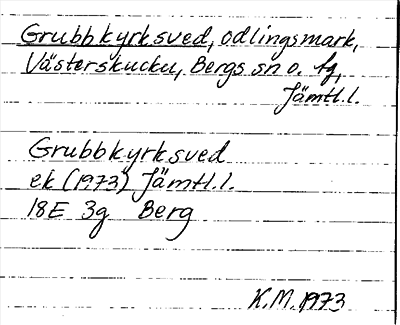 Grubbkyrksved, odlingsmark,
Västerskucku, Bergs sn o. tg,
Jämtl.l.
Grubbkyrksved
ek (1973) Jämtl.l.
18E 3g Berg
K.M. 1973